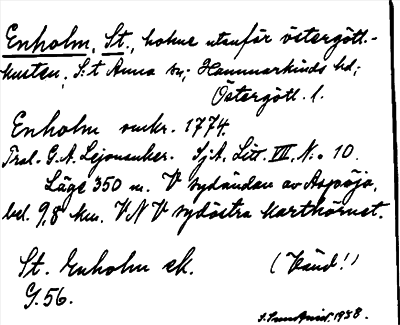 Enholm, St., holme utanför östergötl.-
kusten, S:t Anna sn; Hammarkinds hd;
Östergötl. l.
Enholm omkr. 1774.
Tral. G. A. Lejonanker. SjA, Litt. VIII, N:o 10.
Läge 350 m. V sydändan av Aspöja,
bel. 9,8 km. VNV sydöstra karthörnet.
St. Enholm ek.
(Vänd!)
G. 56.
1938.